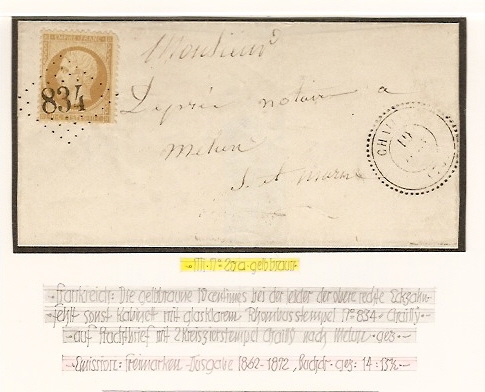 EMPIRE FRANC
834
Monsieur
Leprée notaire a
Melun
S. et Marne
CHAI
19
gelbbraun
Frankreich: Die gelbbraune 10 centimes bei der leider der obere rechte Eckzahn
fehlt sonst Kabinett mit glasklarem Rhombusstempel N° 834 Chailly
auf Briefstück mit 2 Kreiszierstempel Chailly nach Melun ges
Emission: Freimarken Ausgabe 1862-1872, ges: 14:13½